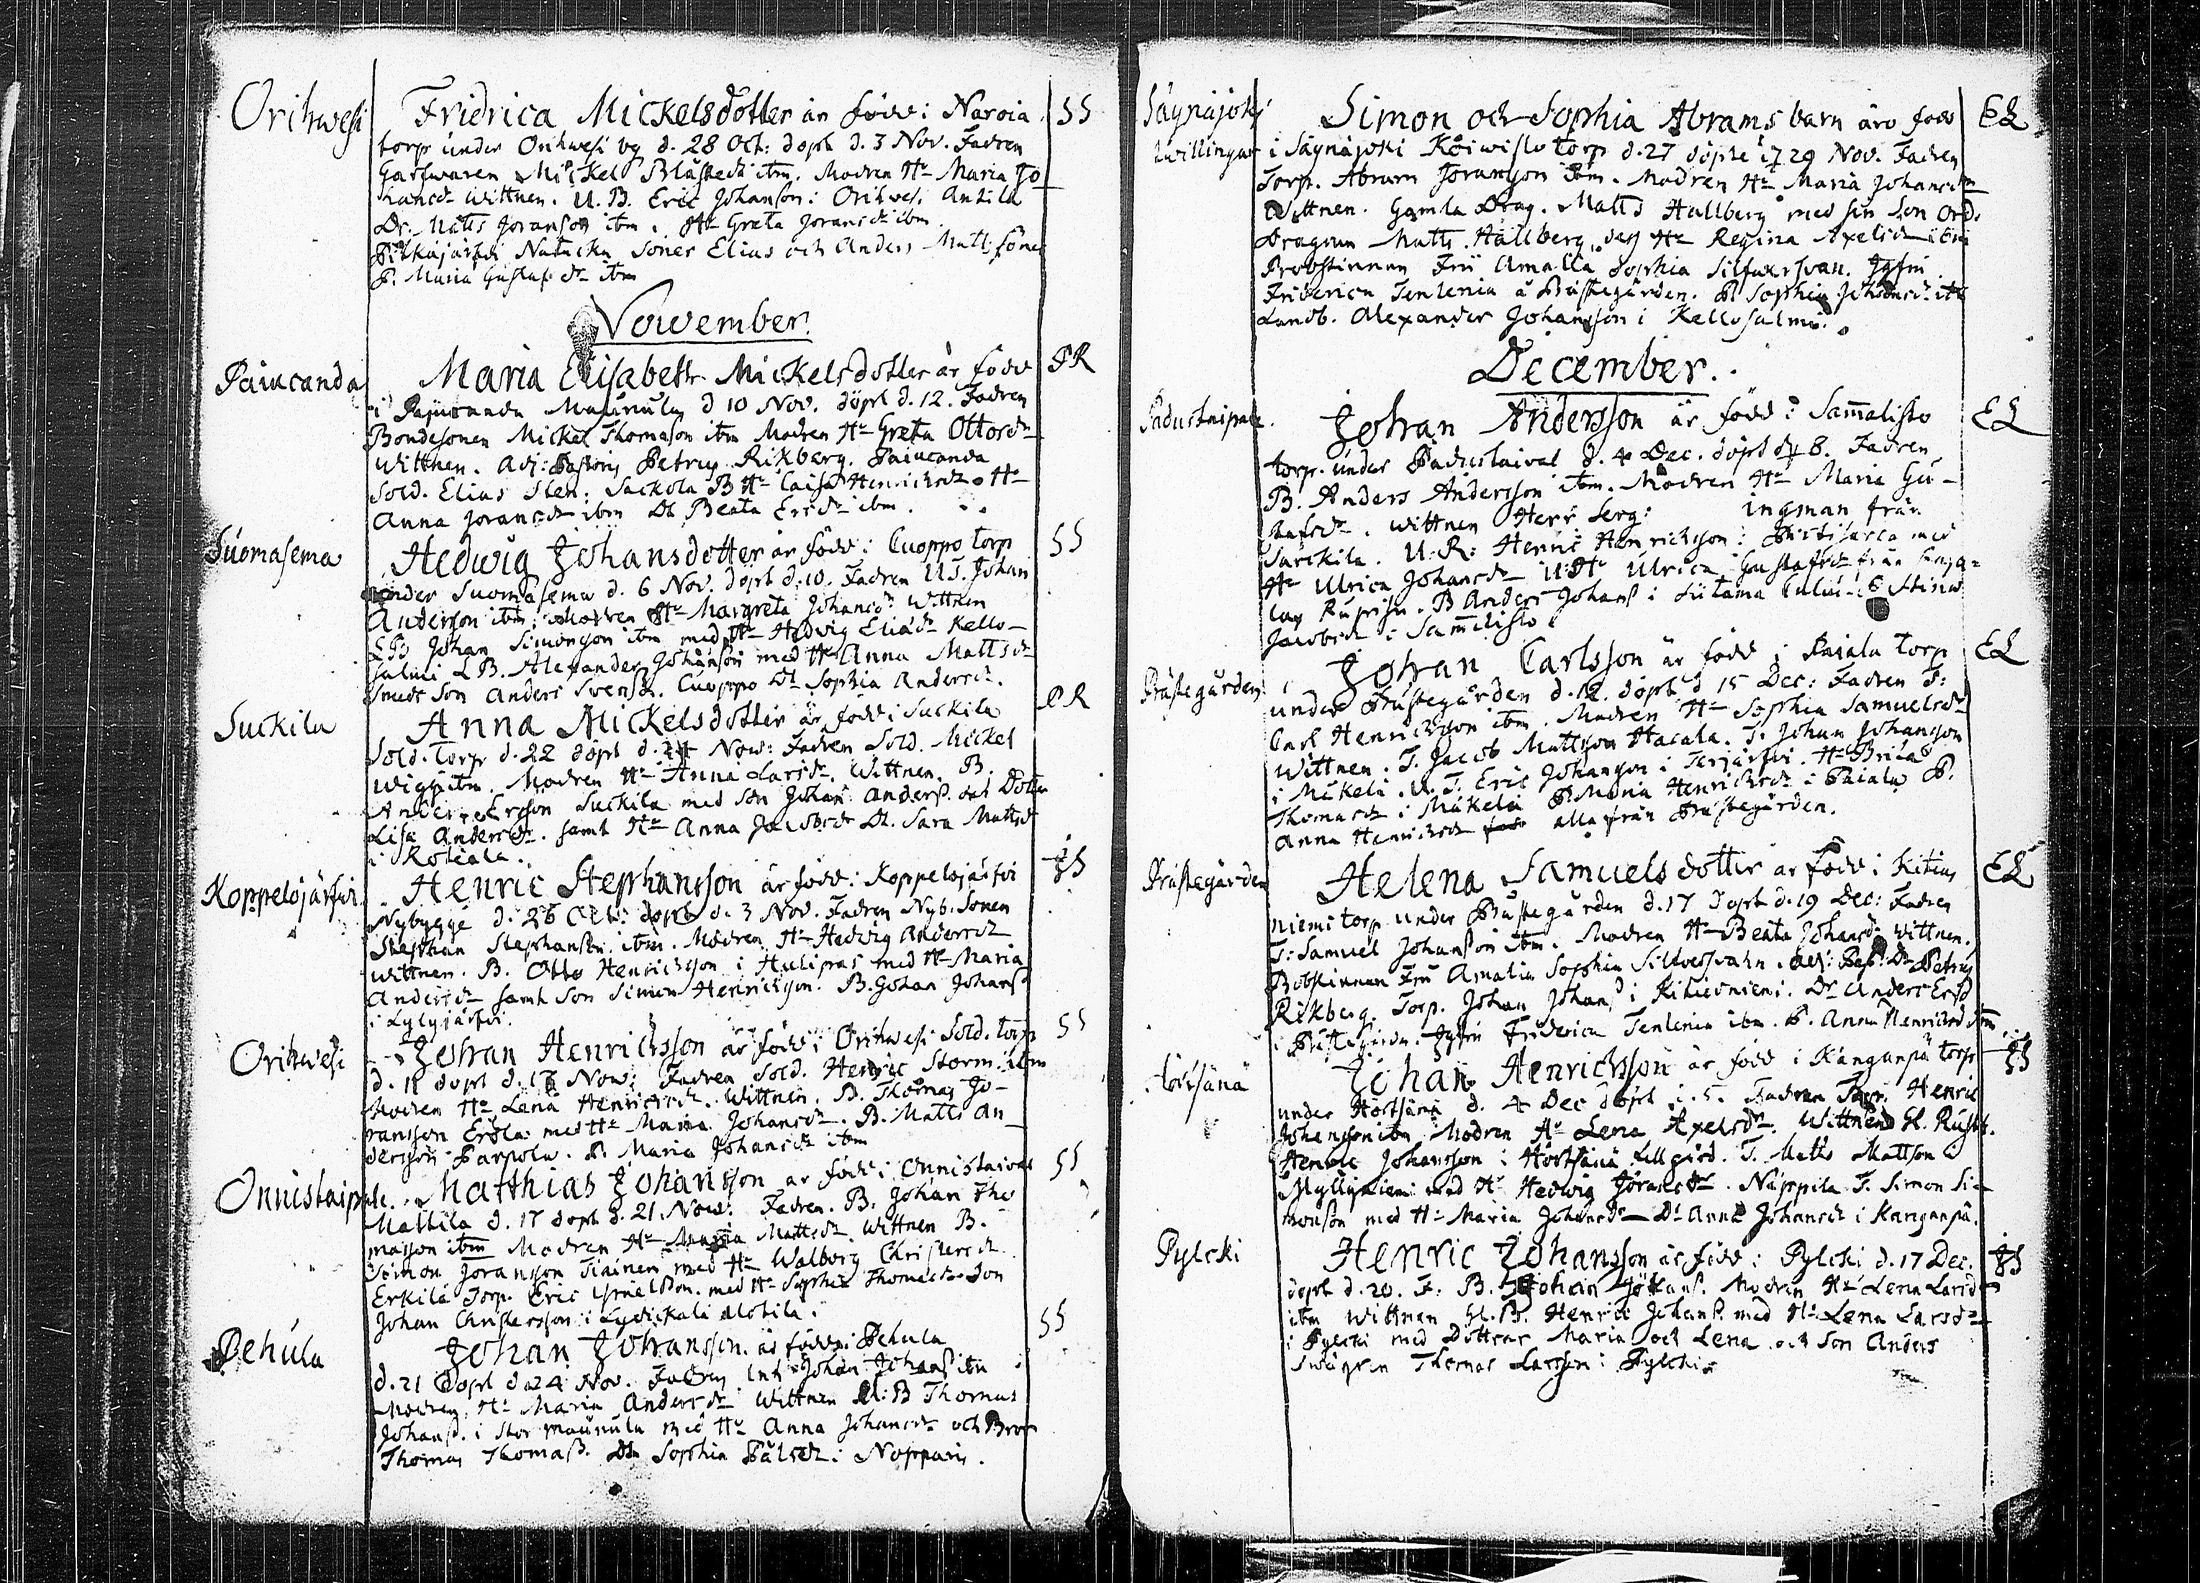 Orihwesi Fridrica Mickelsdotter är född i Naroia SS
torp under Orihwesi by d. 28 Oct: döpt d. 3 Nov. Fadren
Mickel Blästedt ibm. Modren Hu Maria Jo
hansdr Wittnen. U. B. Eric Johanson i Orihwesi Antila
Dr. Matts Joranson ibm. Hu Greta Joransdr ibm.
Soner Elias och Anders Matts söner
P. Maria Gustafsdr ibm
November.
Paiucanda Maria Elisabeth Mickelsdotter är född PR
i Pajucanda Maunula d 10 Nov. döpt d. 12. Fadren
Bondesonen Mickel Thomason ibm Modren Hu Greta Ottosdr
Wittnen. Adj: Pastoris Petrus Rikberg. Paiucanda
Sold. Elias Sten. Sackola B Hu Caisa Henricsdr. Hu
Anna Joransdr ibm Dr Beata Ericsdr ibm.
Suomasema Hedwig Johansdotter är född i Cuoppo torp SS
under Suomasema d. 6 Nov. döpt d. 10. Fadren U.T. Johan
Anderson ibm. Modren Hu Margreta Johansdr Wittnen
LB Johan Simonson ibm med Hu Hedvig Eliasdr Kello-
salmi LB. Alexander Johanson med Hu Anna Mattsdr
Smeds Son Anders Svensk. Cuoppo Dr Sophia Andersdr.
Suckila Anna Mickelsdotter är född i Suckila PR
Sold. Torp d. 22 döpt d. 24 Now: Fadren Sold. Mickel
Wigg ibm. Modren Hu Anna Larsdr. Wittnen. B.
Anders Ersson Suckila med Son Johan Anders. och Dotter
Lisa Andersdr. samt Hu Anna Jacobsdr Dr. Sara Mattsdr
i Roteala.
Koppelojärfvi Henric Stephansson är född i Koppelojärfvi JS
Nybygge d. 26 Oct: döpt d. 3 Nov. Fadren Nyb. Sonen
Stephan Stephanson ibm. Modren Hu Hedvig Andersdr
Wittnen. B. Otto Henricsson i Hulipas med Hu Maria
Andersdr samt Son Simon Henricsson. B. Johan Johans
i Lylyjärfvi.
Orihwesi Johan Henricsson är född i Orihwesi Sold. torp SS
d. 11 döpt d. 17 Now: Fadren Sold. Henric Storm ibm
Modren Hu Lena Henricsdr. Wittnen. B. Thomas Jo-
ransson Erola med Hu Maria Johansdr. B. Matts An-
dersson Parpola. P. Maria Johansdr ibm
Onnistaipale Matthias Johansson är född i Onnistaival SS
Mattila d. 17 döpt d. 21 Now: Fadren. B. Johan Tho
masson ibm Modren Hu Maria Mattsdr. Wittnen B.
Simon Joranson Tiainen med Hu Walborg Christersdr
Erkilä Torp. Eric Israelson. med Hu Sophia Thomasdr Son
Johan Christersson i Lydickala Alotila.
Pehula Johan Johansson är född i Pehula SS
d. 21 döpt d. 24 Nov. Fadren Inh Johan Johans ibm
Modren Hu Maria Andersdr Wittnen U: B Thomas
Johans. i Stor Maunula med Hu Anna Johansdr och Bror
Thomas Thomas. Dr Sophia Pålsdr i Noppari.
Säynäjoki Simon och Sophia Abrams barn äro född EL
twillingar i Säynäjoki Koiwisto torp d. 27 döpte d 29 Nov. Fadren
Torp. Abram Joranson ibm. Modren Hu Maria Johansdr
Wittnen. Gamla Drag. Matts Hallberg med sin Son ord.
Dragoun Matts Hallberg, dess Hu Regina Axelsdr ibm
Probstinnan Fru Amalia Sophia Silfwersvan. Jgfru
Friderica Tenlenia å Prästegården. P. Sophia Johansdr ibm
Landb. Alexander Johansson i Kellosalmi.
December.
Padustaipale. Johan Andersson är född i Sammalisto EL
torp under Padustaival d. 4 Dec. döpt d. 8. Fadren
B. Anders Andersson ibm. Modren Hu Maria Gu-
stafsdr. Wittnen Herr Serg: Ingman från
Särckila. U. R: Henric Henricsson i med
Hu Ulrica Johansdr U: Hu Ulrica Gustafsdr från
B Anders Johans i Siitama Stina
Jacobsdr i Sammalisto
Prästegården Johan Carlsson är född i Paiala torp EL
under Prästegården d. 12. döpt d 15 Dec: Fadren T:
Carl Henricsson ibm. Modren Hu Sophia Samuelsdr
Wittnen. T. Jacob Mattson Hacala. T: Johan Johansson
i Mäkelä. U. T. Eric Johanson i Terjärfvi. Hu Brita
Thomasdr i Mäkelä P. Maria Henricsdr i Paiala P.
Anna Henricsdr alla från Prästegården.
Prästegården Helena Samuelsdotter är född i Kitius EL
niemi torp under Prästegården d. 17 döpt d. 19 Dec: Fadren
T: Samuel Johanson ibm. Modren Hu Beata Johansdr Wittnen.
Probstinnan Fru Amalia Sophia Silfversvahn. Adj: Past: Dn Petrus
Rikberg. Torp. Johan Johans i Kitiusniemi. Dr Anders Ersd
i Prästegården. Jgfru Friderica Tenlenia ibm. P. Anna Henricsdr ibm
Hörtsänä Johan Henricsson är född i Kanganpä torp JS
under Hörtsänä d. 4 Dec döpt d. 5. Fadren Torp. Henric
Johansson ibm Modren Hu Lena Axelsdr. Wittnen H. Rusth.
Henric Johansson i Hörtsänä Lillgård. T. Matts Mattson
i Myllyniemi med Hu Hedwig Joransdr. Näppilä T. Simon Si-
monson med Hu Maria Johansdr Dr Anna Johansdr i Kanganpä.
Pylcki Henric Johansson är född i Pylcki d. 17 Dec. JS
döpt d. 20. F: B. Johan Johans. Modren Hu Lena Larsdr
ibm Wittnen Gl. B. Henric Johans. med Hu Lena Larsdr
i Pylcki med Döttrar Maria och Lena och Son Anders
Swågren Thomas Larsson i Pylcki